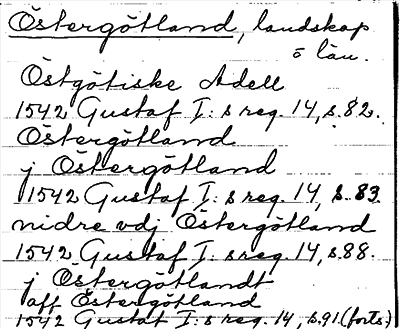 Östergötland, landskap
o län.
Östgötiske Adell
1542 Gustaf I:s reg. 14, s. 82.
Östergötland
j Östergötland
1542 Gustaf I:s reg. 14, s. 83
nidre vdj Östergötland
1542 Gustaf I:s reg. 14, s. 88.
j Östergötlandt
aff Östergötland
1542 Gustaf I:s reg. 14, s. 91 (forts.)